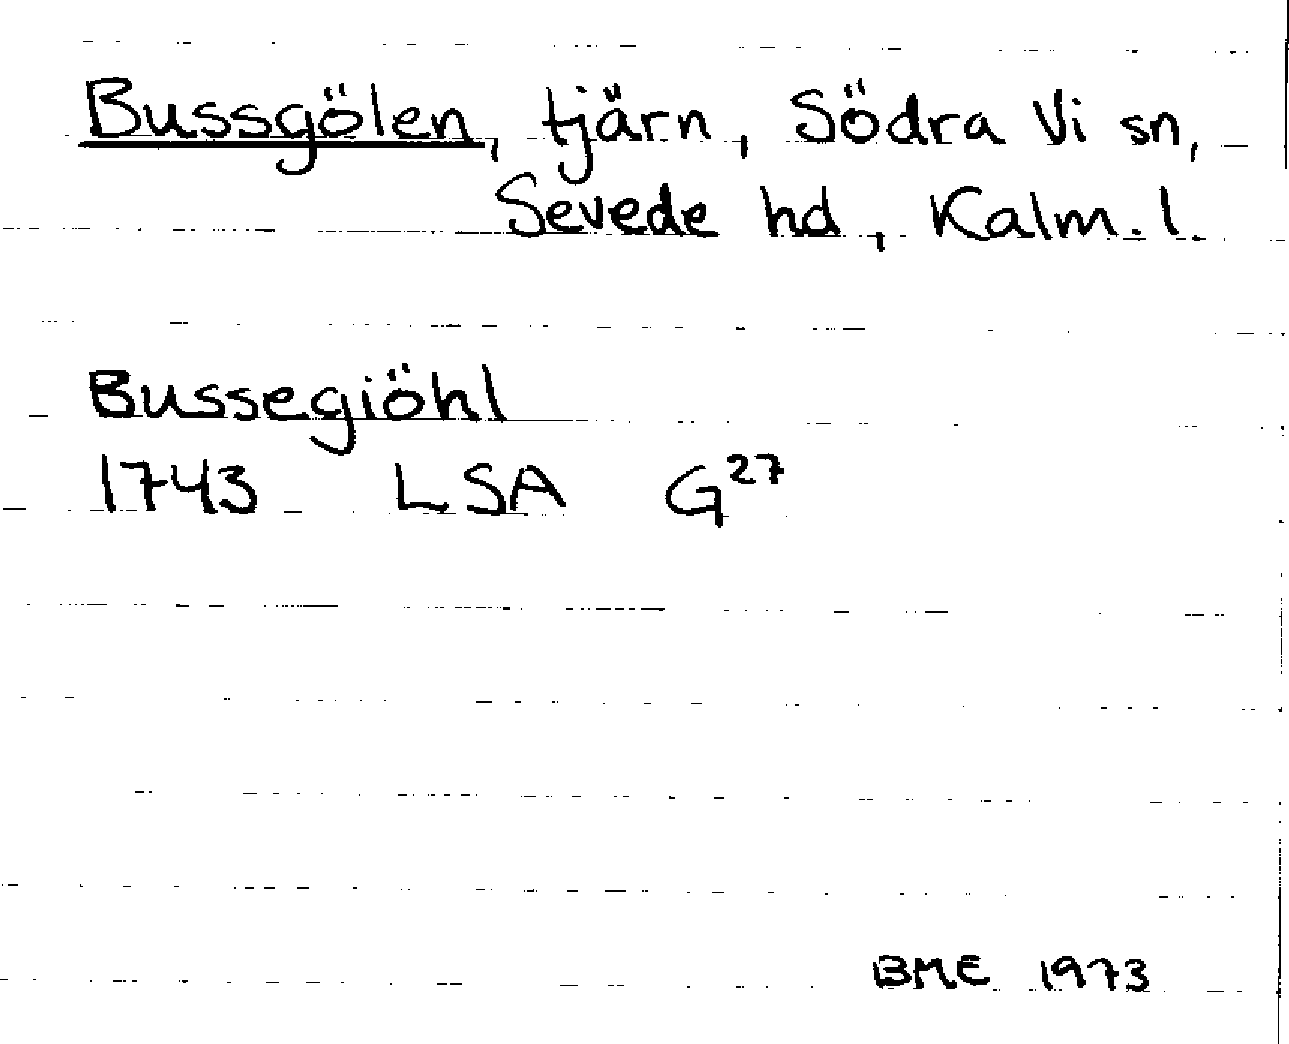 Bussgölen, tjärn, Södra Vi sn,
Sevede hd, Kalm. l.
Bussegiöhl
1743 LSA G27
BME 1973